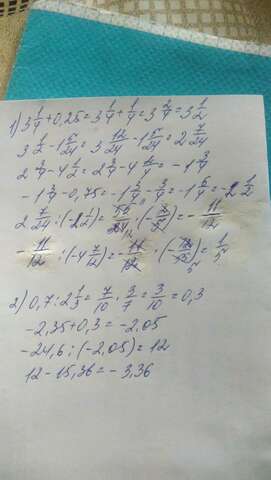 1) 3 1/4 + 0,25 = 3 1/4 + 1/4 = 3 2/4 = 3 1/2
3 1/2 - 1 5/24 = 3 12/24 - 1 5/24 = 2 7/24
2 3/4 - 4 1/2 = 2 3/4 - 4 2/4 = -1 3/4
-1 3/4 - 0,75 = -1 3/4 - 3/4 = -1 6/4 = -2 1/2
2 7/24 : (-2 1/2) = 55/24 · (-2/5) = - 11/12
- 11/12 : (-4 7/12) = - 11/12 · (- 12/55) = 1/5
2) 0,7 : 2 1/3 = 7/10 · 3/7 = 3/10 = 0,3
-2,35 + 0,3 = -2,05
-24,6 : (-2,05) = 12
12 - 15,36 = -3,36